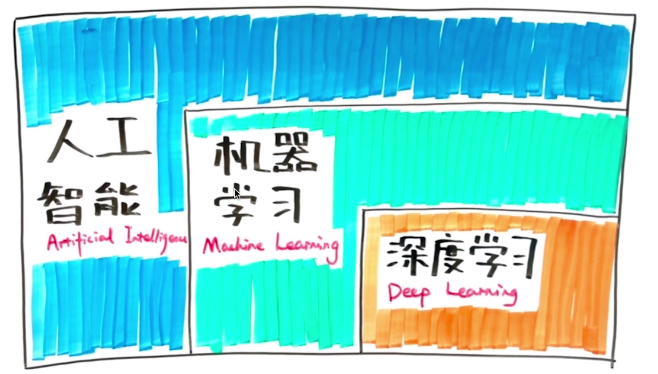 人工
智能
Artificial Intelligence
机器
学习
Machine Learning
深度学习
Deep Learning